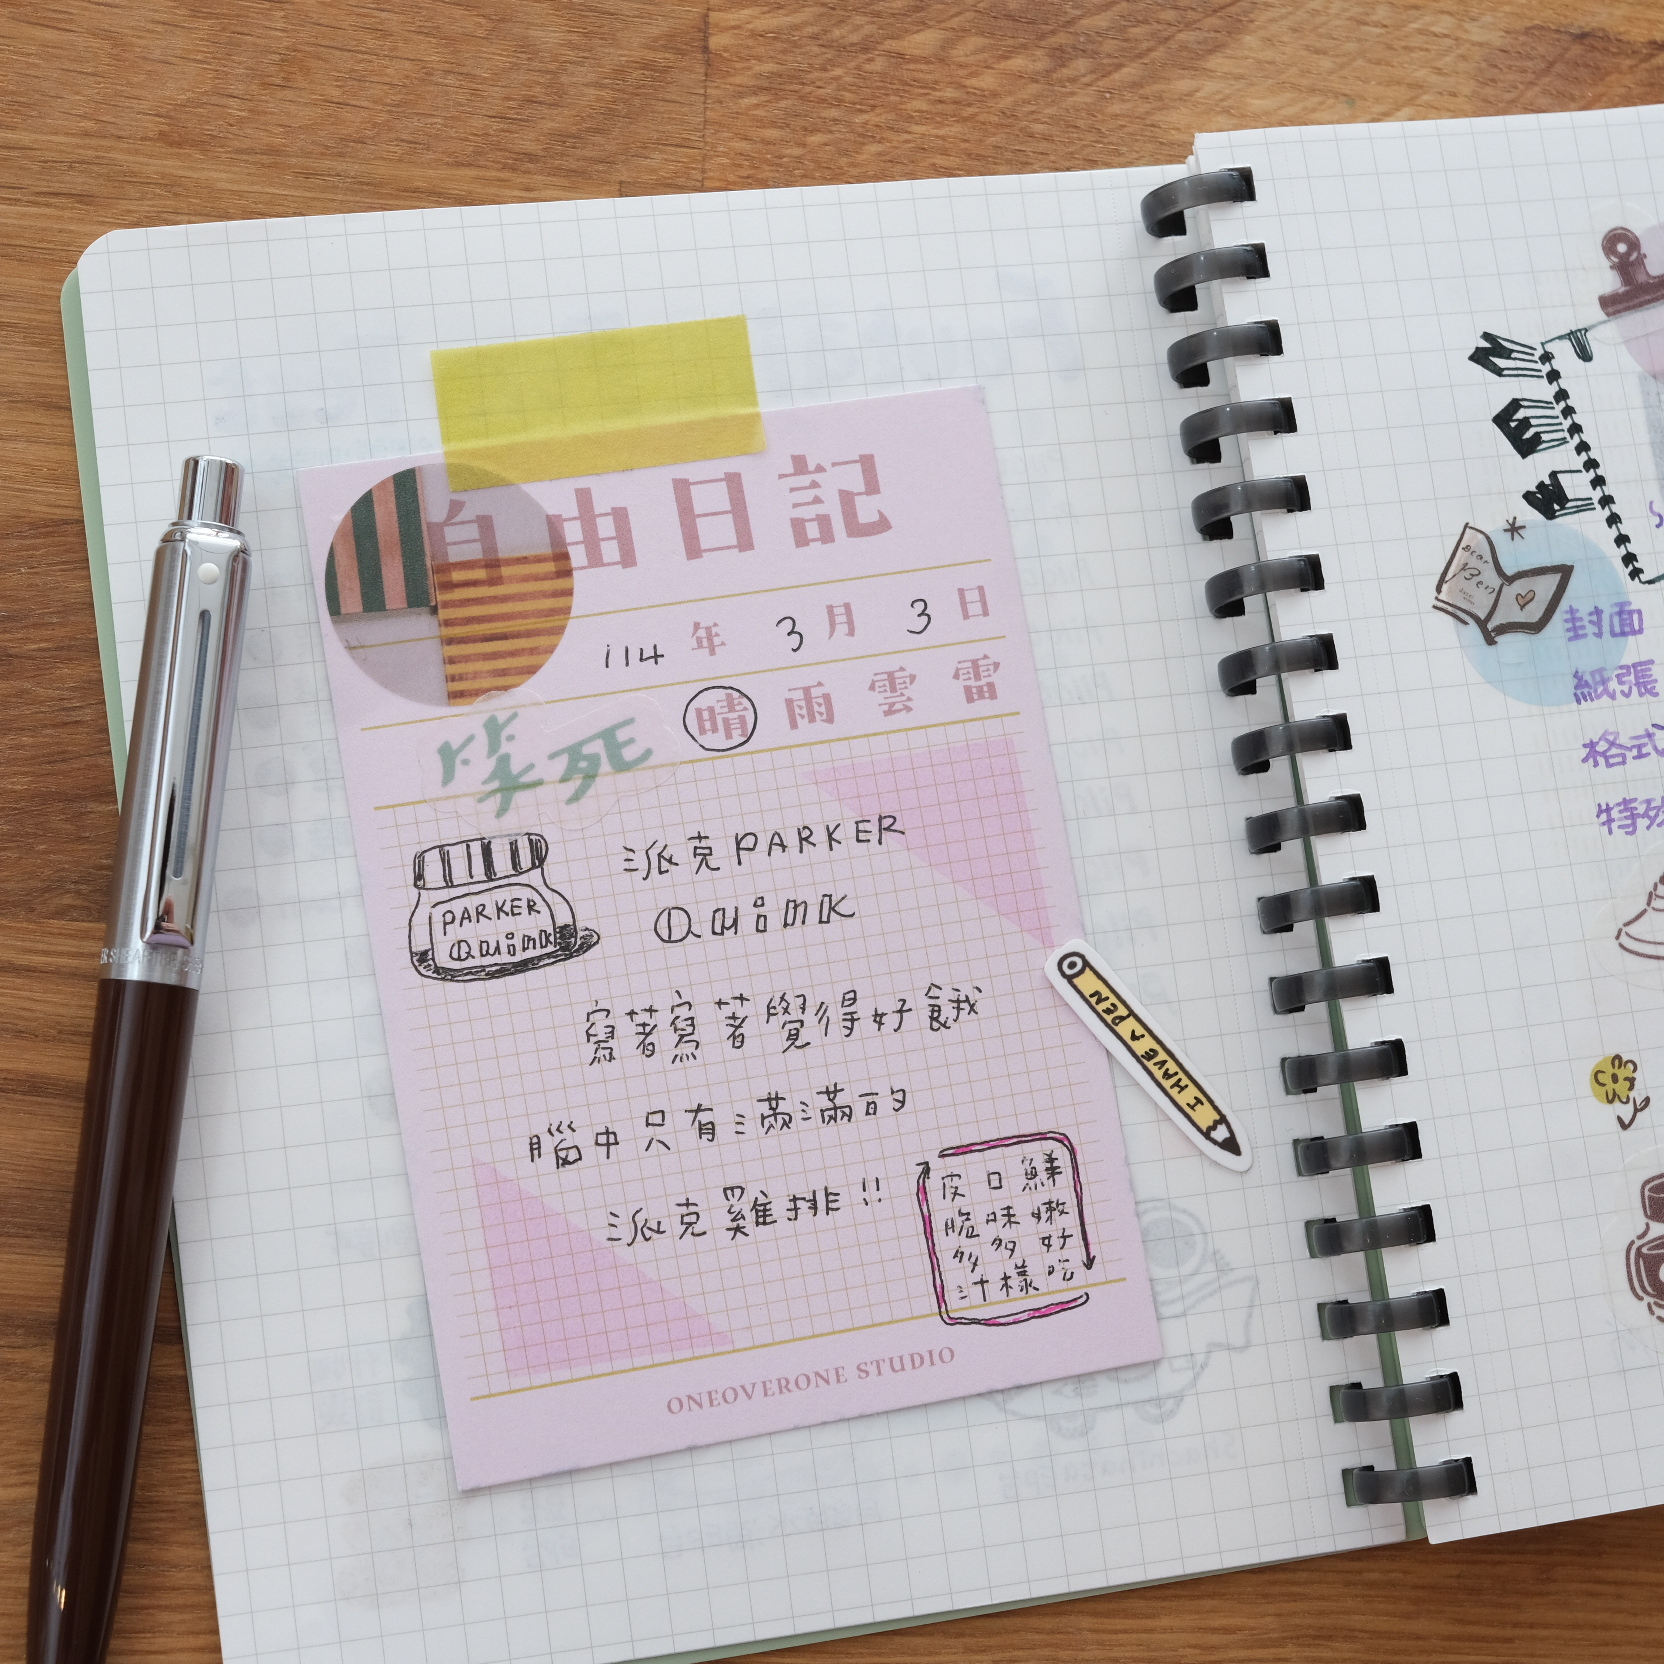 自由日記
114 年 3 月 3 日
晴 雨 雲 雷
笑死
派克 PARKER
Quink
PARKER
Quink
寫著寫著覺得好餓
腦中只有滿滿的
派克雞排!!
鮮嫩好吃
口味多樣
皮脆多汁
I HAVE A PEN
ONEOVERONE STUDIO
Dear
Ben
封面
紙張
格式
特殊